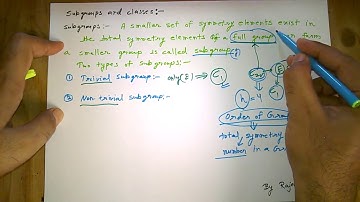 Subgroups and classes:-
Subgroups:- A smaller set of symmetry elements exist in
the total symmetry elements of a full group form
a smaller group is called subgroup (g)
Two types of subgroups:-
① Trivial subgroup:- only (E) ⇒ C₁
② Non trivial subgroup:-
E
h = 4
Order of Group
total symmetry
number in a Gr
By Raja